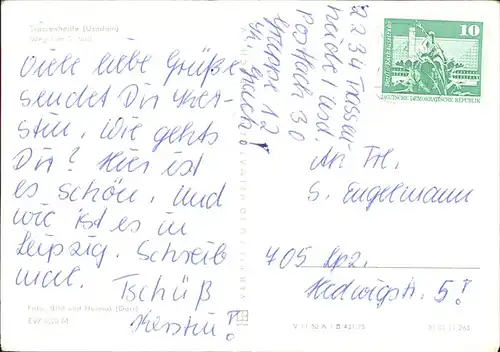 Trassenheide (Usedom)
Viele liebe Grüße
sendet Dir Ker-
stin. Wie gehts
Dir? Hier ist
es schön. Und
wie ist es in
Leipzig. Schreib
mal. Tschüß
Kerstin!
Foto: Bild und Heimat
V 11 50 A 1 B 421/75
2234 Trassen-
heide / Usd.
Postfach 30
Gruppe 12
10
DEUTSCHE DEMOKRATISCHE REPUBLIK
An Frl.
S. Engelmann
705 Lpz.
Hedwigstr. 5!